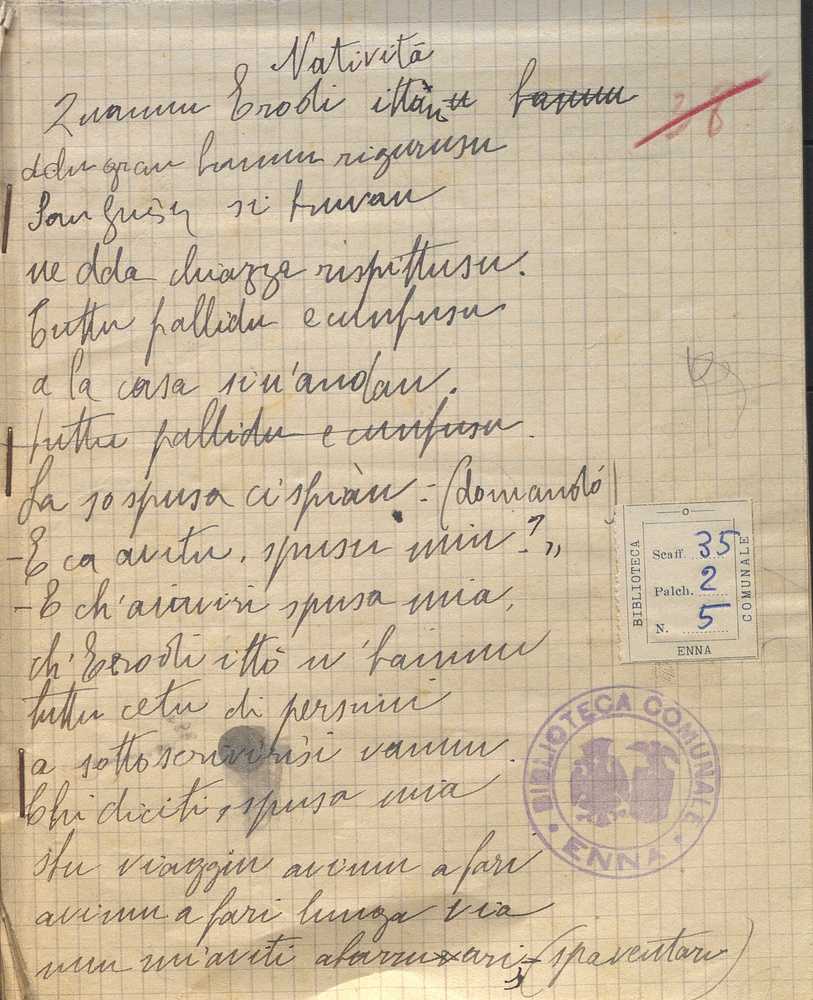 Natività
Quannu Erodi ittàu bannu
ddu gran bannu rigurusu
San Gnisippi si truvau
ne dda chiazza rispittusu.
Tuttu pallidu e cunfusu
a la casa sinn'andau.
tuttu pallidu e cunfusu.
La so spusa ci spiàu: - (domandò)
- E ca avitu, spusu miu? „
- E ch'aiaviri spusa mia,
ch'Erodi ittò n'bannu
tuttu cetu di persuni
a sottoscrivirisi vannu.
Chi diciti, spusa mia
stu viaggiu avimu a fari
avimu a fari lunga via
nun m'aviti (spaventari)
38
BIBLIOTECA COMUNALE
Scaff. 35
Palch. 2
N. 5
ENNA
BIBLIOTECA COMUNALE
ENNA